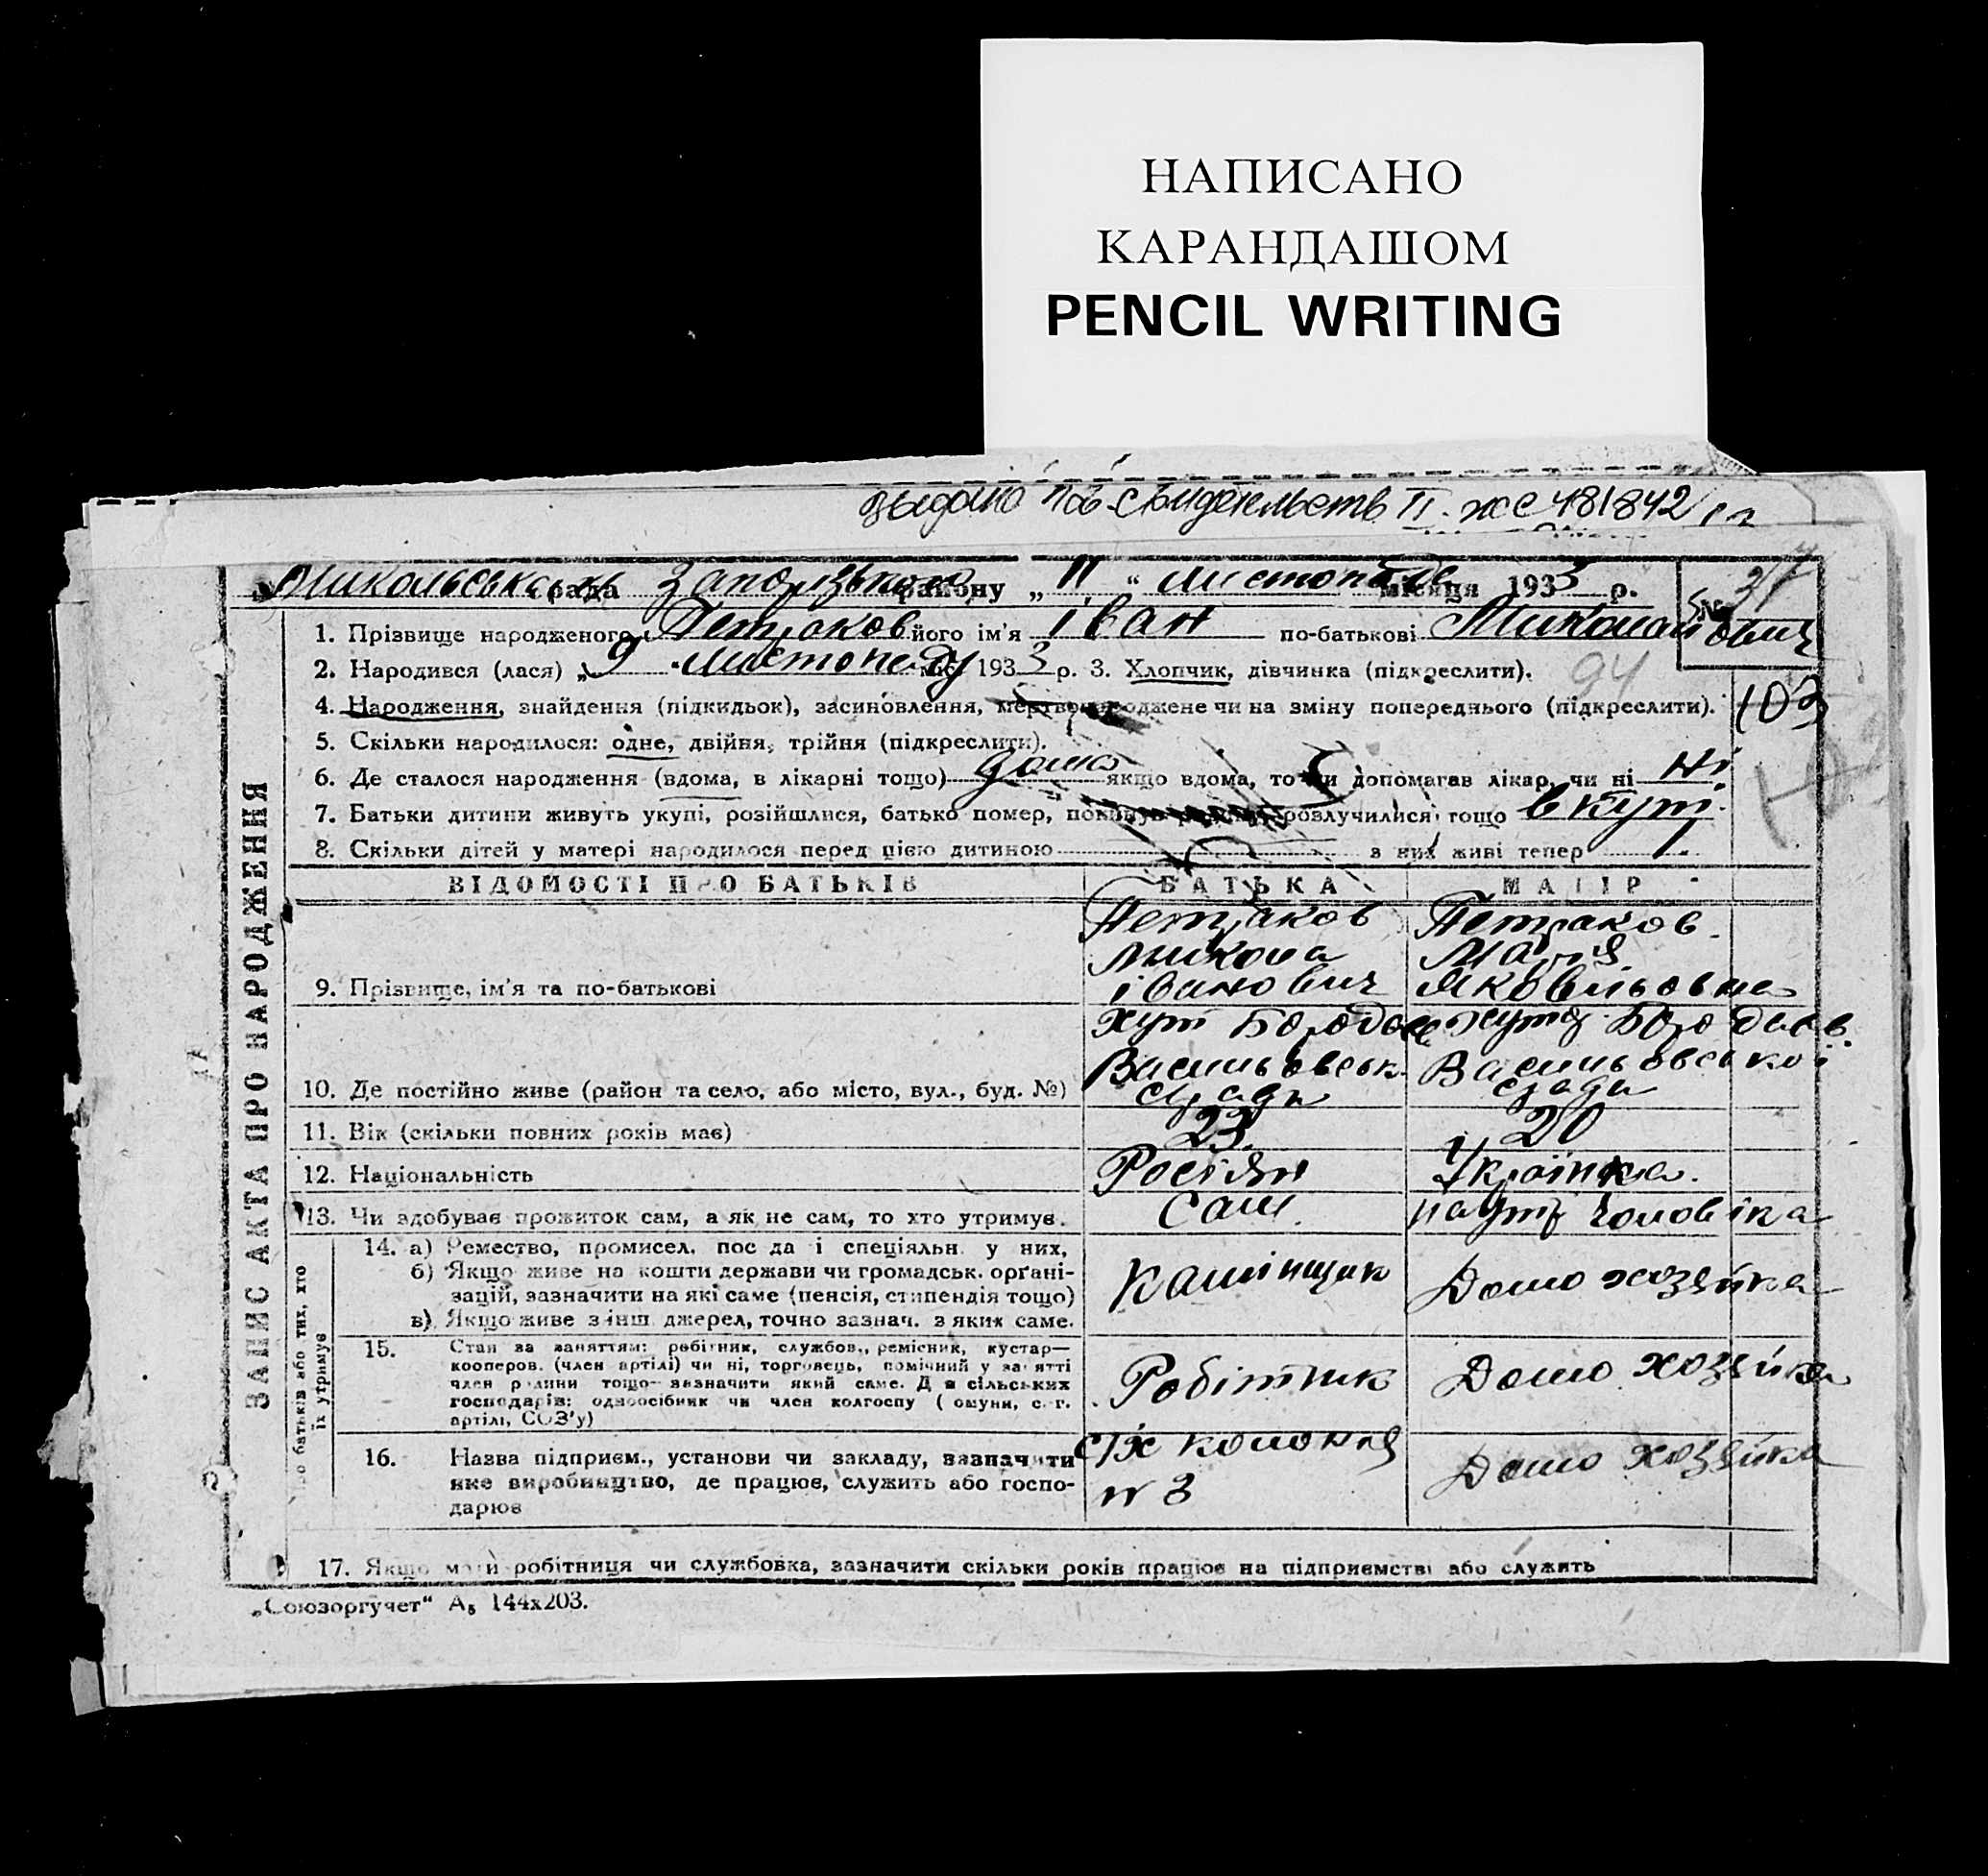 НАПИСАНО
КАРАНДАШОМ
PENCIL WRITING
выдано пов. свидетельств II. жс 481842
Микольська с/рада Запорізького району „11“ листопада місяця 1933 р. №37
1. Прізвище народженого Петраков його ім'я Іван по-батькові Миколайович
2. Народився (лася) „9 листопаду міс. 1933 р. 3. Хлопчик, дівчинка (підкреслити). 94
4. Народження, знайдення (підкидьок), засиновлення, мертвонароджене чи на зміну попереднього (підкреслити). 103
5. Скільки народилося: одне, двійня, трійня (підкреслити).
6. Де сталося народження (вдома, в лікарні тощо) дома якщо вдома, то чи допомагав лікар, чи ні ні
7. Батьки дитини живуть укупі, розійшлися, батько помер, покинув розлучилися тощо вкупі
8. Скільки дітей у матері народилося перед цією дитиною з них живі тепер
ВІДОМОСТІ ПРО БАТЬКІВ БАТЬКА МАТІР
Петраков Петраков
Микола Марія
9. Прізвище, ім'я та по-батькові Іванович Яковільовна
хут
Васильовськ. Васильовської
10. Де постійно живе (район та село, або місто, вул., буд. №) с/ради с/ради
11. Вік (скільки повних років має) 23 20
12. Національність Росіян Українка.
13. Чи здобуває прожиток сам, а як не сам, то хто утримує. Сам. чоловіка
14. а) Ремество, промисел, посада і спеціяльн. у них,
б) Якщо живе на кошти держави чи громадськ. органі-
зацій, зазначити на які саме (пенсія, стипендія тощо) Камінщик Домохозяйка
в) Якщо живе з інш. джерел, точно зазнач. з яких саме.
15. Стан за заняттям: робітник, службов., ремісник, кустар—
кооперов. (член артілі) чи ні, торговець, помічний у занятті
член родини тощо—зазначити який саме. Для сільських Робітник Домохозяйка
господарів: одноосібник чи член колгоспу (комуни, с.-г.
артілі, СОЗ'у)
16. Назва підприєм., установи чи закладу, зазначити с/х колонія
яке виробництво, де працює, служить або госпо- №3 Домохозяйка
дарює
17. Якщо мати робітниця чи службовка, зазначити скільки років працює на підприємстві або служить
„Союзоргучет“ А₅ 144х203.
ЗАПИС АКТА ПРО НАРОДЖЕННЯ
Про батьків або тих, хто
їх утримує